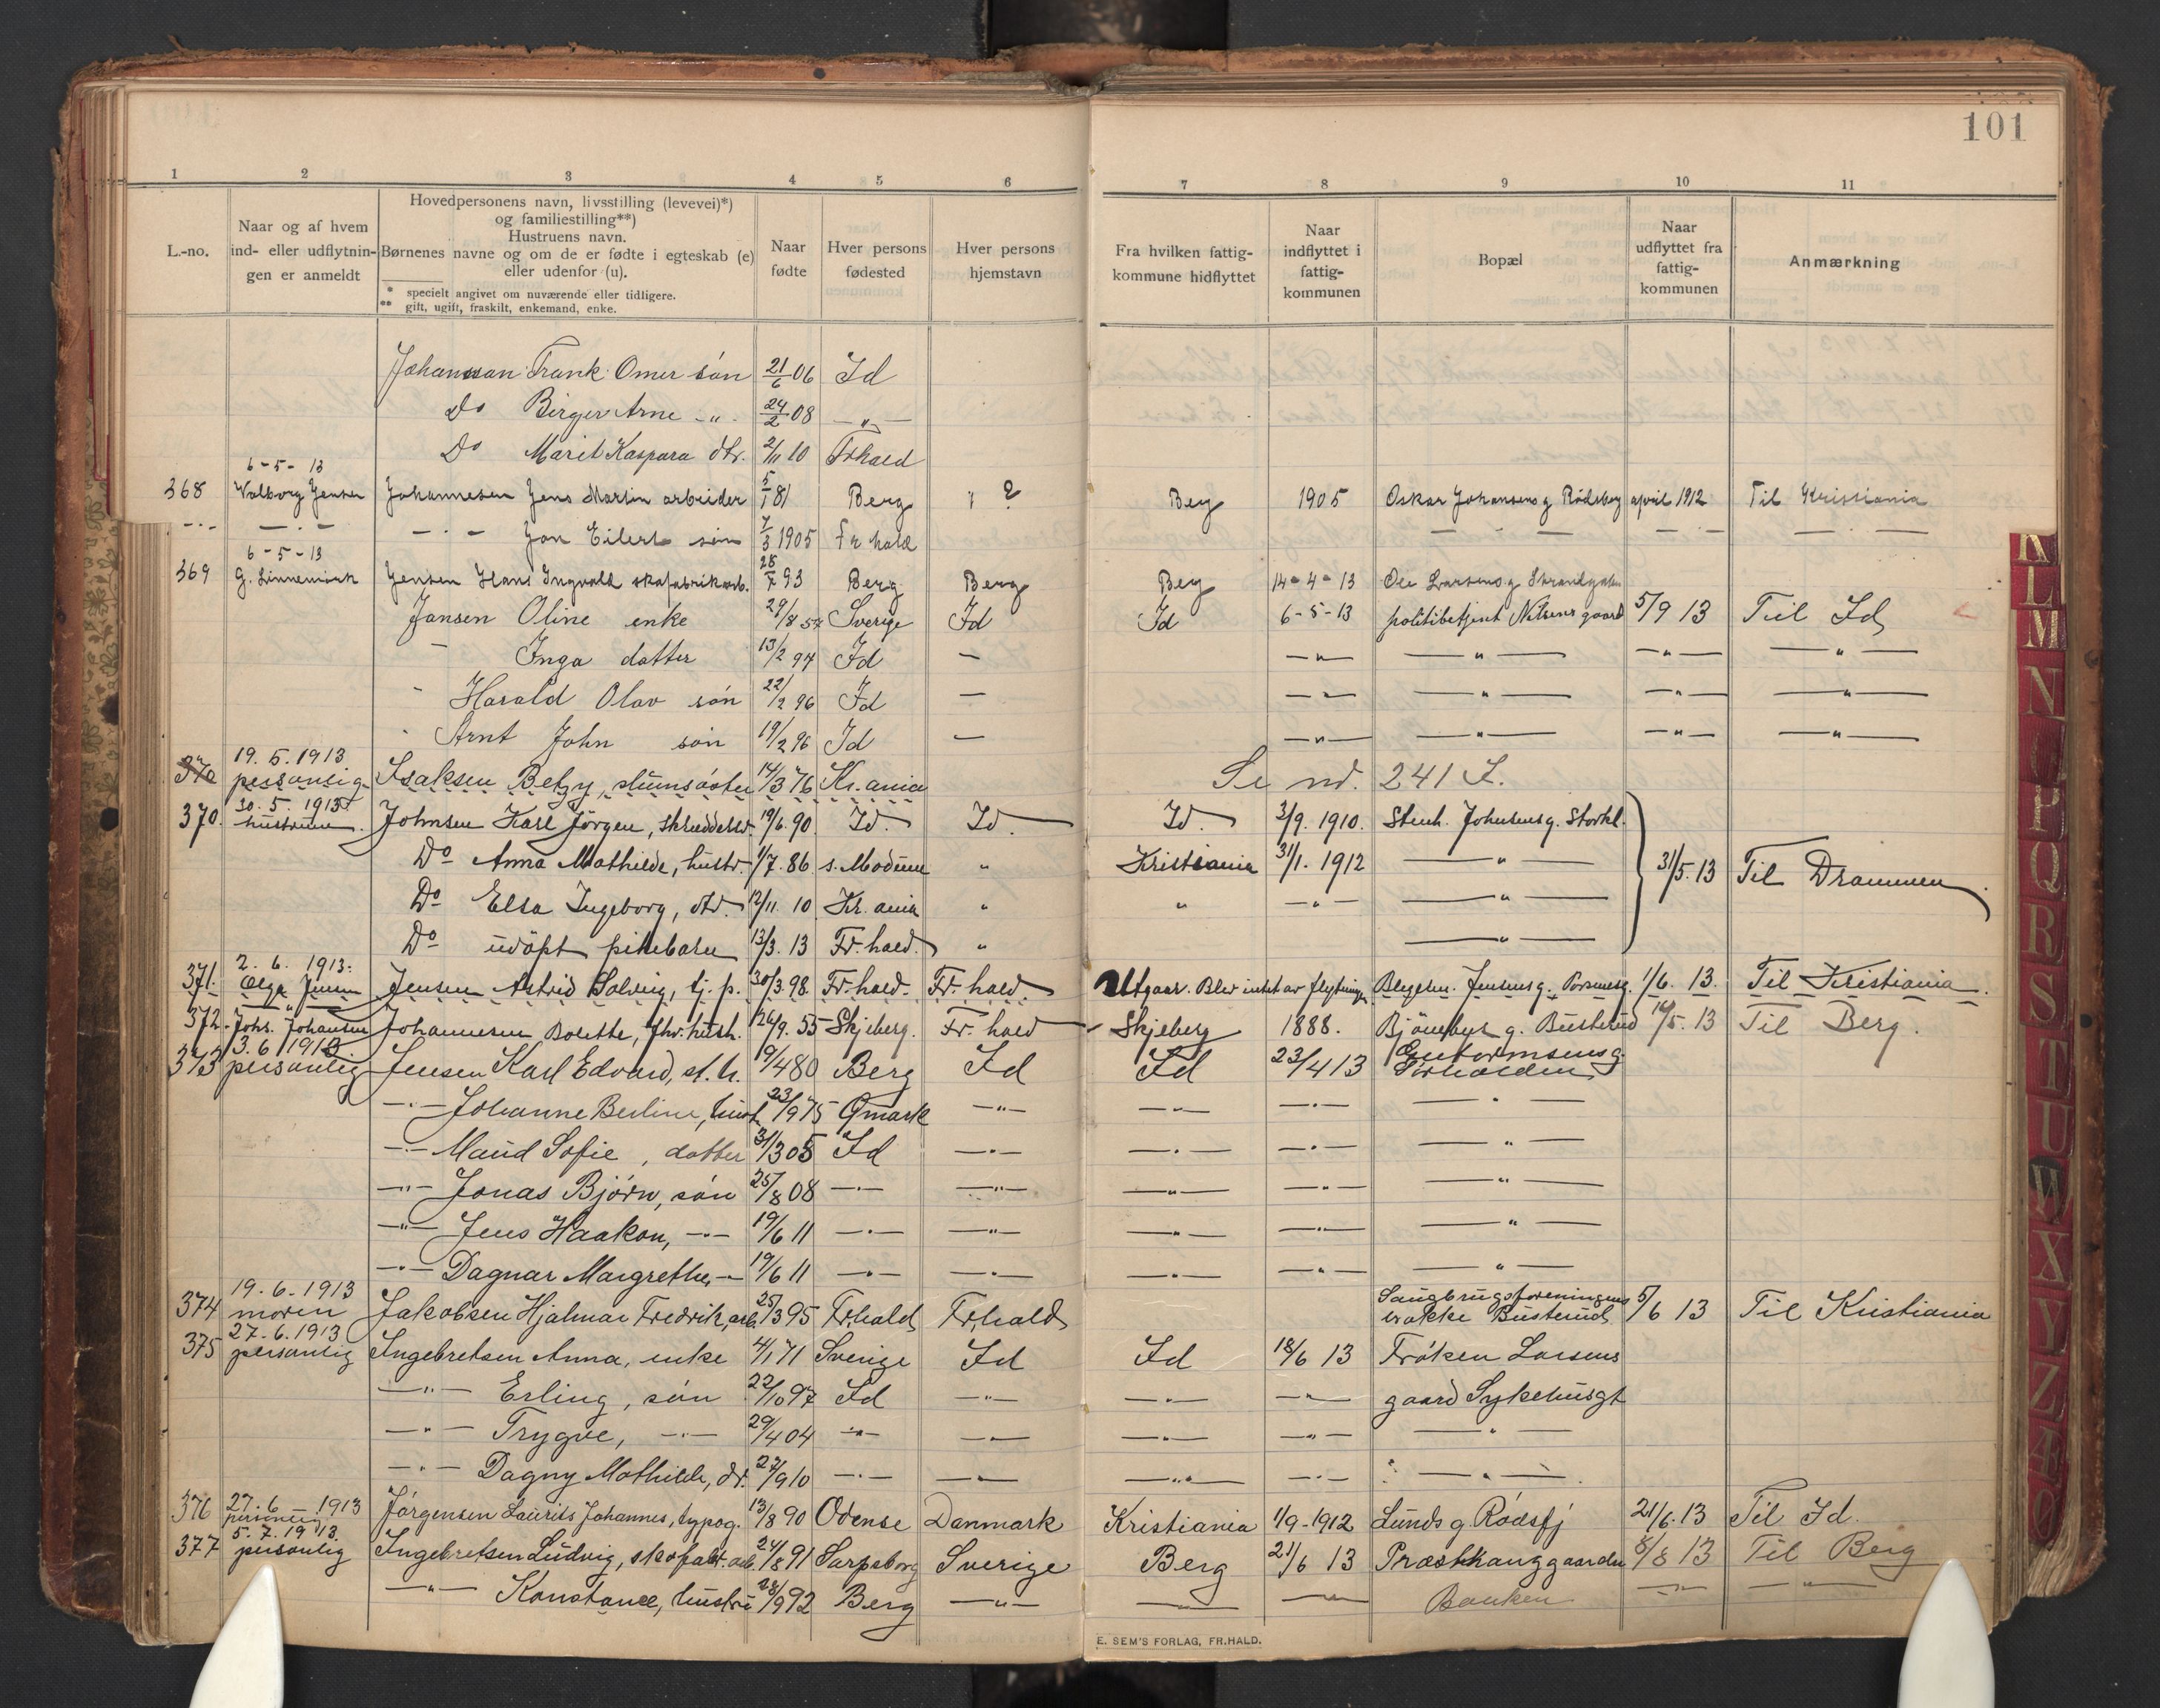 101
1 2 3 4 5 6 7 8 9 10 11
L.-no.
Naar og af hvem ind- eller udflytnin- gen er anmeldt
Hovedpersonens navn, livsstilling (levevei)*)
og familiestilling**)
Hustruens navn.
Børnenes navne og om de er fødte i egteskab (e)
eller udenfor (u).
* specielt angivet om nuværende eller tidligere.
** gift, ugift, fraskilt, enkemand, enke.
Naar fødte
Hver persons fødested
Hver persons hjemstavn
Fra hvilken fattig- kommune hidflyttet
Naar indflyttet i fattig- kommunen
Bopæl
Naar udflyttet fra fattig- kommunen
Anmærkning
Johansson Frank Omer søn 21/6 06 Id
Do Birger Arne -„- 24/2 08 -„-
Do Marit Kaspara dtr. 2/11 10 Frhald
6-5-13
368 Valborg Jensen Johannesen Jens Martin arbeider 5/1 81 Berg ? Berg 1905 Oskar Johansens g Rødsberg april 1912 Til Kristiania
-„- -„- -„- Jon Eilert søn 7/3 1905 Frhald — — — — — —
6-5-13
369 G. Linnemirk Jensen Hans Ingvald skofabrikarb. 28/7 93 Berg Berg Berg 14-4-13 Ole Larsens g Strandgaten
Jansen Oline enke 29/8 57 Sverige Id Id 6-5-13 politibetjent Nilsens gaard 5/9 13 Til Id
- Inga datter 13/2 94 Id — -„- -„- -„- -„-
- Harald Olav søn 22/2 96 Id — -„- -„- -„- -„-
- Arnt John søn 19/2 96 Id — -„- -„- -„- -„-
19.5.1913
370 personlig Isaksen Betzy, stuinsøster 14/3 76 Kr.ania Se no. 241 I.
30.5.1913
370. hustruen. Johnsen Karl Jörgen, skreddersv. 19/6.90. Id. Id. Id. 3/9. 1910. Stenh. Johnsens g. Storkl.
Do Anna Mathilde, hustr. 1/7.86. s. Modum „ Kristiania 31/1. 1912 -„- 31/5.13 Til Drammen
Do Elsa Ingeborg, dtr. 12/11. 10. Kr.ania „ „ -„- -„-
Do udöpt pikebarn 13/3. 13 Fr.hald. „ -„-
2.6. 1913.
371. Olga Jensen Jensen Astrid Solveig, tj.p. 30/3.98. Fr.hald. Fr.hald. Utgaar. Blev intet av flytningen Blegesn. Jensens g. Porsnesg. 1/6. 13. Til Kristiania.
-„-
372. Johs. Johansen Johannesen Bolette, fhv. hush. 26/9. 55 Skjeberg. Fr.hald Skjeberg 1888. Bjönebyes g. Busterud 16/5. 13 Til Berg.
3.6 1913
373 personlig Jensen Karl Edvard, st.h. 19/4 80 Berg Id Id 23/4 13 Guttormsens g. Sørhalden
-„- Johanne Berline, hust. 23/9 75 Ømark -„- -„- -„- -„-
-„- Maud Sofie, datter 31/3 05 Id -„- -„- -„- -„-
-„- Jonas Bjørn, søn 25/8 08 -„- -„- -„- -„- -„-
-„- Jens Haakon, -„- 19/6 11 -„- -„- -„- -„- -„-
-„- Dagnar Margrethe, -„- 19/6 11 -„- -„- -„- -„- -„-
19.6.1913
374 moren Jakobsen Hjalmar Fredrik, arb. 25/3 95 Fr.hald Fr.hald Saugbrugsforeningens brakke Busterud 5/6 13 Til Kristiania
27.6.1913
375 personlig Ingebretsen Anna, enke 4/1 71 Sverige Id Id 18/6 13 Frøken Larsens
-„- Erling, søn 22/10 97 Id -„- -„- -„- gaard Sykehusgt
-„- Trygve, -„- 29/4 04 -„- -„- -„- -„- -„-
-„- Dagny Mathilde, dr. 27/9 10 -„- -„- -„- -„- -„-
376 27.6 1913 personlig Jørgensen Laurits Johannes, typog. 13/8 90 Odense Danmark Kristiania 1/9-1912 Lunds g. Rødsfj 21/6.13 Til Id.
5.7.1913.
377 personlig Ingebretsen Ludvig, skofabr. arb. 24/8 91 Sarpsborg Sverige Berg 21/6 13 Præsthauggaarden 8/8 13 Til Berg
-„- Konstance, hustru 28/9 92 Berg -„- — -„- Banken -„- -„-
E. SEM'S FORLAG, FR.HALD.
K
L
M
N
P
Q
R
S
T
U
W
X
Y
Z
Æ
Ø